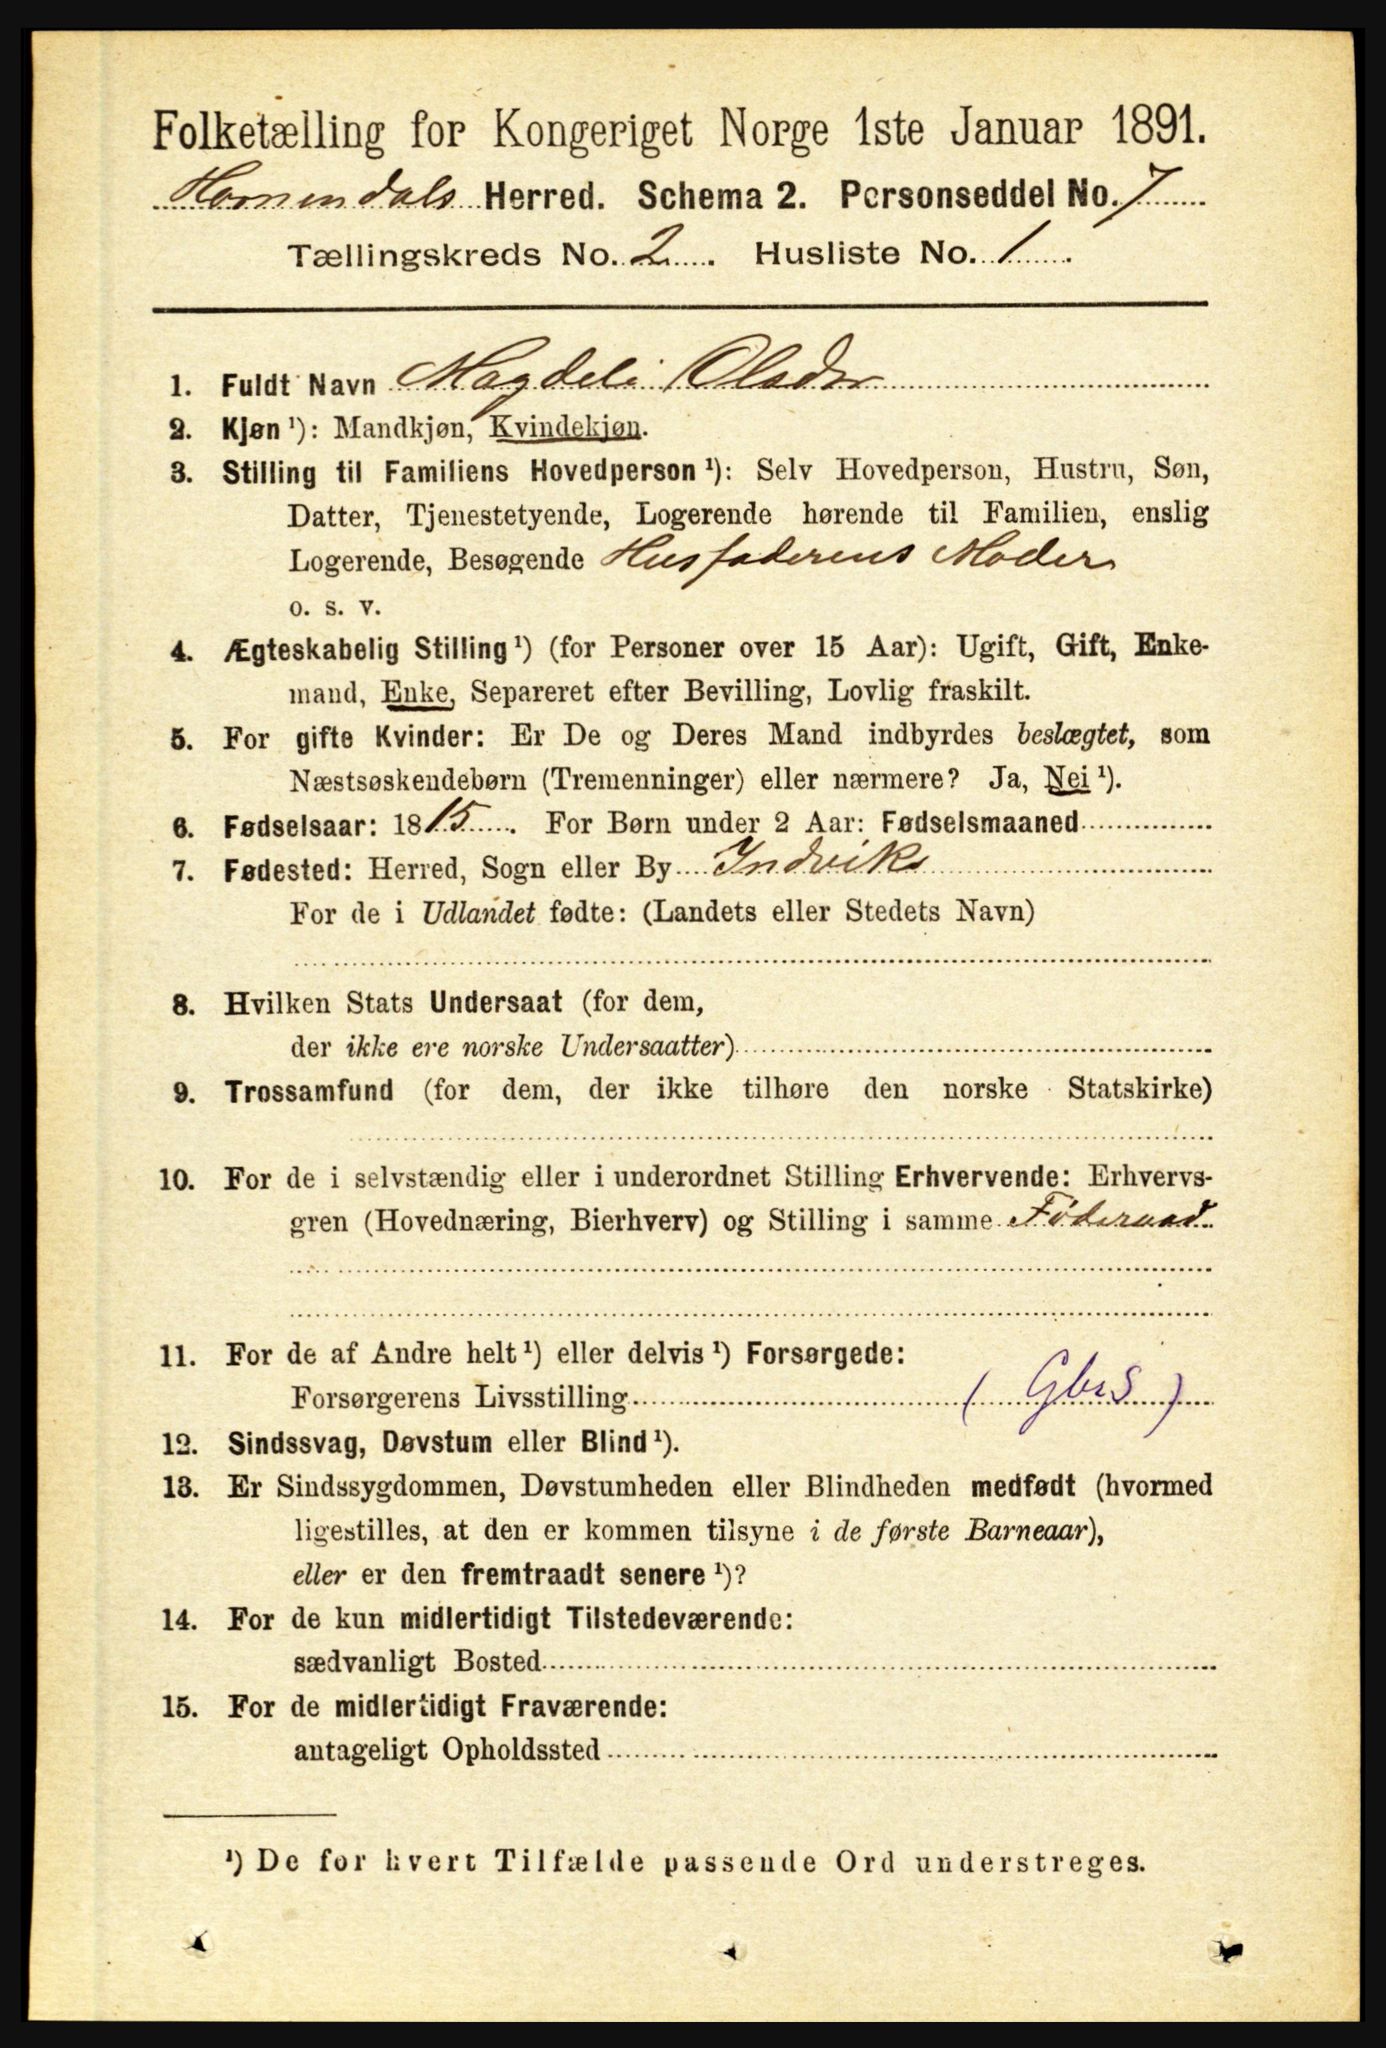 Folketælling for Kongeriget Norge 1ste Januar 1891.
Hornindals Herred. Schema 2. Personseddel No. 7
Tællingskreds No. 2. Husliste No. 1.
1. Fuldt Navn Magdeli Olsdr
2. Kjøn ¹): Mandkjøn, Kvindekjøn.
3. Stilling til Familiens Hovedperson ¹): Selv Hovedperson, Hustru, Søn,
Datter, Tjenestetyende, Logerende hørende til Familien, enslig
Logerende, Besøgende Husfaderens Moder
o. s. v.
4. Ægteskabelig Stilling ¹) (for Personer over 15 Aar): Ugift, Gift, Enke-
mand, Enke, Separeret efter Bevilling, Lovlig fraskilt.
5. For gifte Kvinder: Er De og Deres Mand indbyrdes beslægtet, som
Næstsøskendebørn (Tremenninger) eller nærmere? Ja, Nei ¹).
6. Fødselsaar: 1815. For Børn under 2 Aar: Fødselsmaaned
7. Fødested: Herred, Sogn eller By Indviks
For de i Udlandet fødte: (Landets eller Stedets Navn)
8. Hvilken Stats Undersaat (for dem,
der ikke ere norske Undersaatter)
9. Trossamfund (for dem, der ikke tilhøre den norske Statskirke)
10. For de i selvstændig eller i underordnet Stilling Erhvervende: Erhvervs-
gren (Hovednæring, Bierhverv) og Stilling i samme Føderaad
11. For de af Andre helt ¹) eller delvis ¹) Forsørgede:
Forsørgerens Livsstilling (GbrS)
12. Sindssvag, Døvstum eller Blind ¹).
13. Er Sindssygdommen, Døvstumheden eller Blindheden medfødt (hvormed
ligestilles, at den er kommen tilsyne i de første Barneaar),
eller er den fremtraadt senere ¹)?
14. For de kun midlertidigt Tilstedeværende:
sædvanligt Bosted
15. For de midlertidigt Fraværende:
antageligt Opholdssted
¹) De for hvert Tilfælde passende Ord understreges.